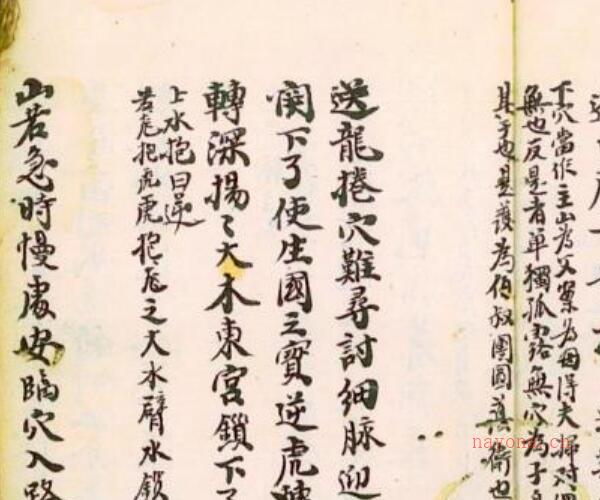 下穴當作主山為父案為母得夫婦对
無也反是者单獨孤露無穴為子
其子也是護為伯叔團圓護衛也
送龍捲穴難尋討細脉迎
関下了使生國之寳逆虎轉
轉深揚〻大木東宮鎖下了
上水抱曰逆
若龙抱虎虎抱龙之大水臂水鎖
山若急時慢處安臨穴入路
nayona.cn